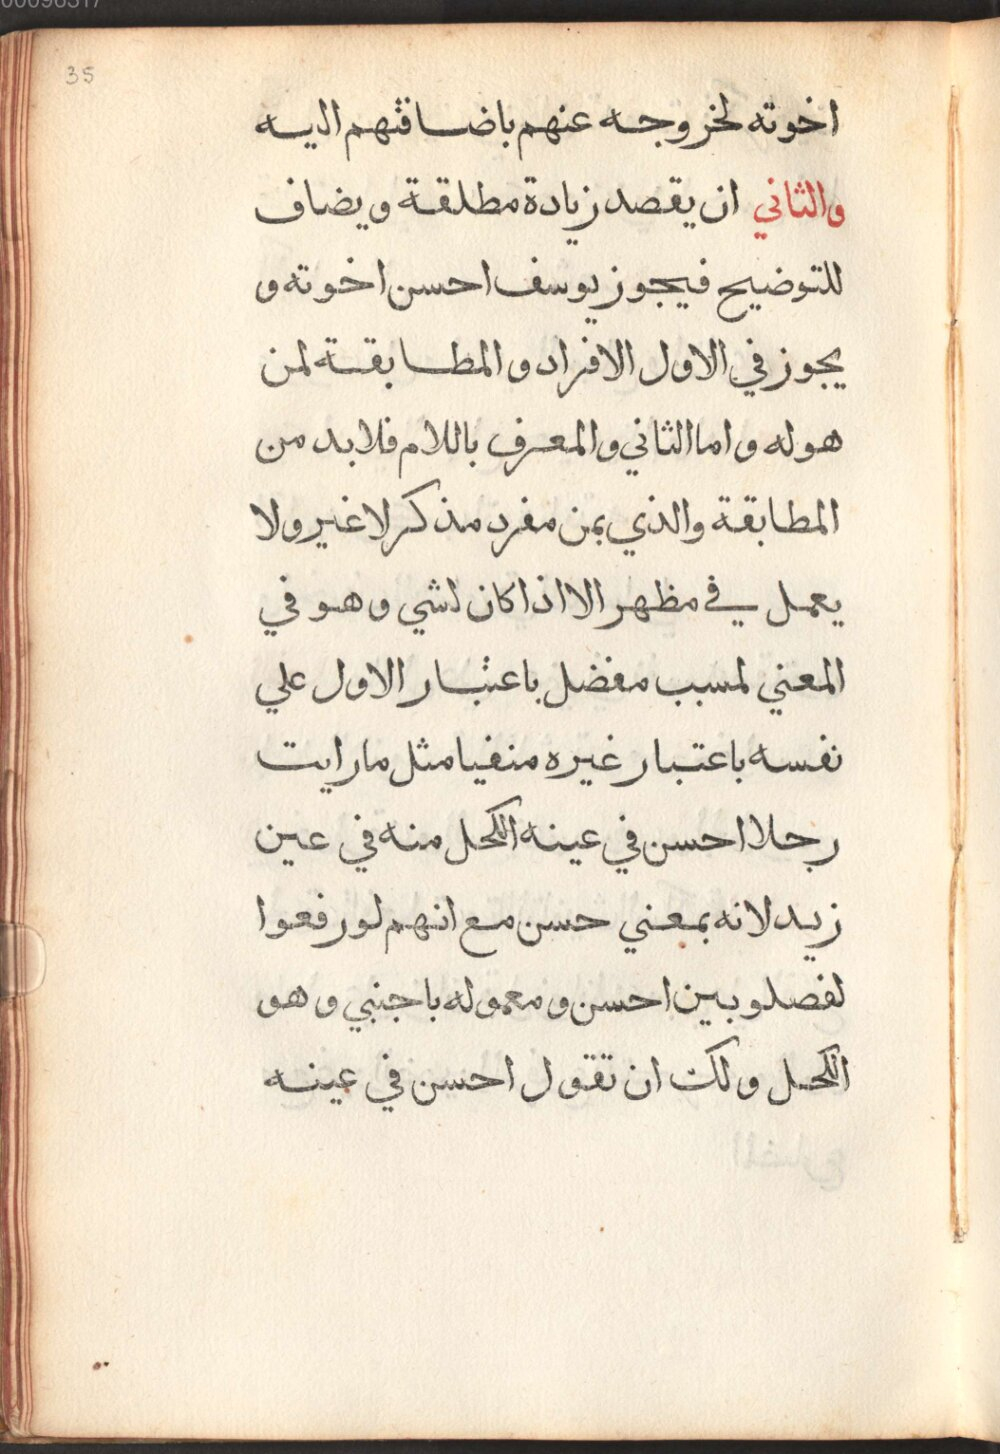 35
اخوته لخروجه عنهم باضافتهم اليه
والثاني ان يقصد زيادة مطلقة ويضاف
للتوضيح فيجوز يوسف احسن اخوته و
يجوز في الاول الافراد والمطابقة لمن
هو له واما الثاني والمعرف باللام فلا بد من
المطابقة والذي بمن مفرد مذكر لا غير ولا
يعمل في مظهر الا اذا كان لشي وهو في
المعني لمسبب مفضل باعتبار الاول علي
نفسه باعتبار غيره منفيا مثل ما رايت
رجلا احسن في عينه الكحل منه في عين
زيد لانه بمعني حسن مع انهم لو رفعوا
لفصلو بين احسن ومعموله باجنبي وهو
الكحل ولك ان تقول احسن في عينه